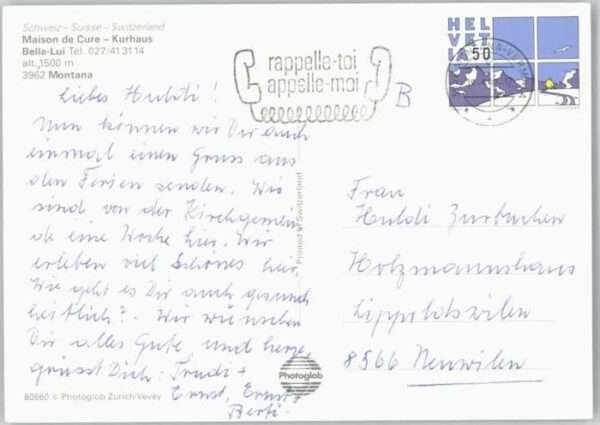 Schweiz – Suisse – Switzerland
Maison de Cure – Kurhaus
Bella-Lui Tél. 027/41 31 14
alt. 1500 m
3962 Montana
HEL
VET
IA 50
rappelle-toi
appelle-moi
B
Liebes Huldi!
Nun können wir Dir auch
einmal einen Gruss aus
den Ferien senden. Wir
sind von der Kirchgemein
de eine Woche hier. Wir
erleben viel Schönes hier.
Wie geht es Dir auch gesund
heitlich? Wir wünschen
Dir alles Gute und herzl.
grüsst Dich: Trudi +
Ernst,
Berti.
Printed in Switzerland
Frau
Huldi Zurbuchen
Holzmannshaus
Lippoldswilen
8566 Neuwilen
Photoglob
80660 © Photoglob Zürich/Vevey